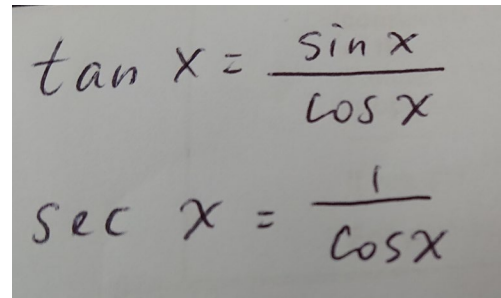 tan x = sin x / cos x
sec x = 1 / cos x